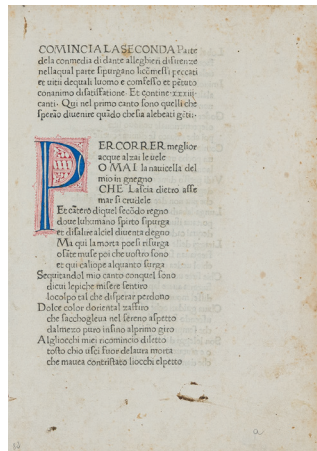 COMINCIA LA SECONDA Parte
dela conmedia di dante alleghieri di firenze
nellaqual parte sipurgano licōmessi peccati
et uitii dequali luomo e comfesso et pētuto
conanimo disatisfatione. Et contine .xxxiii.
canti. Qui nel primo canto sono quelli che
sperāo diuenire quādo chesia alebeati gēti:
PER CORRER meglior
acque alzai le uele
O MAI la nauicella del
mio in gnegno
CHE Lascia dietro asse
mar si crudele
Et cātero diquel secōdo regno
doue luhumano spirito sipurga
et disalire alciel diuenta degno
Ma qui la morta poesi risurga
o sāte muse poi che uostro sono
et qui caliope alquanto surga
Sequitandol mio canto conquel sono
dicui lepiche misere sentiro
locolpo tal che disperar perdono
Dolce color doriental zaffiro
che sacchogleua nel sereno aspetto
dalmezo puro insino alprimo giro
Alglocchi miei ricomincio diletto
tosto chio usci fuor delaura morta
che mauea contristato liocchi elpetto